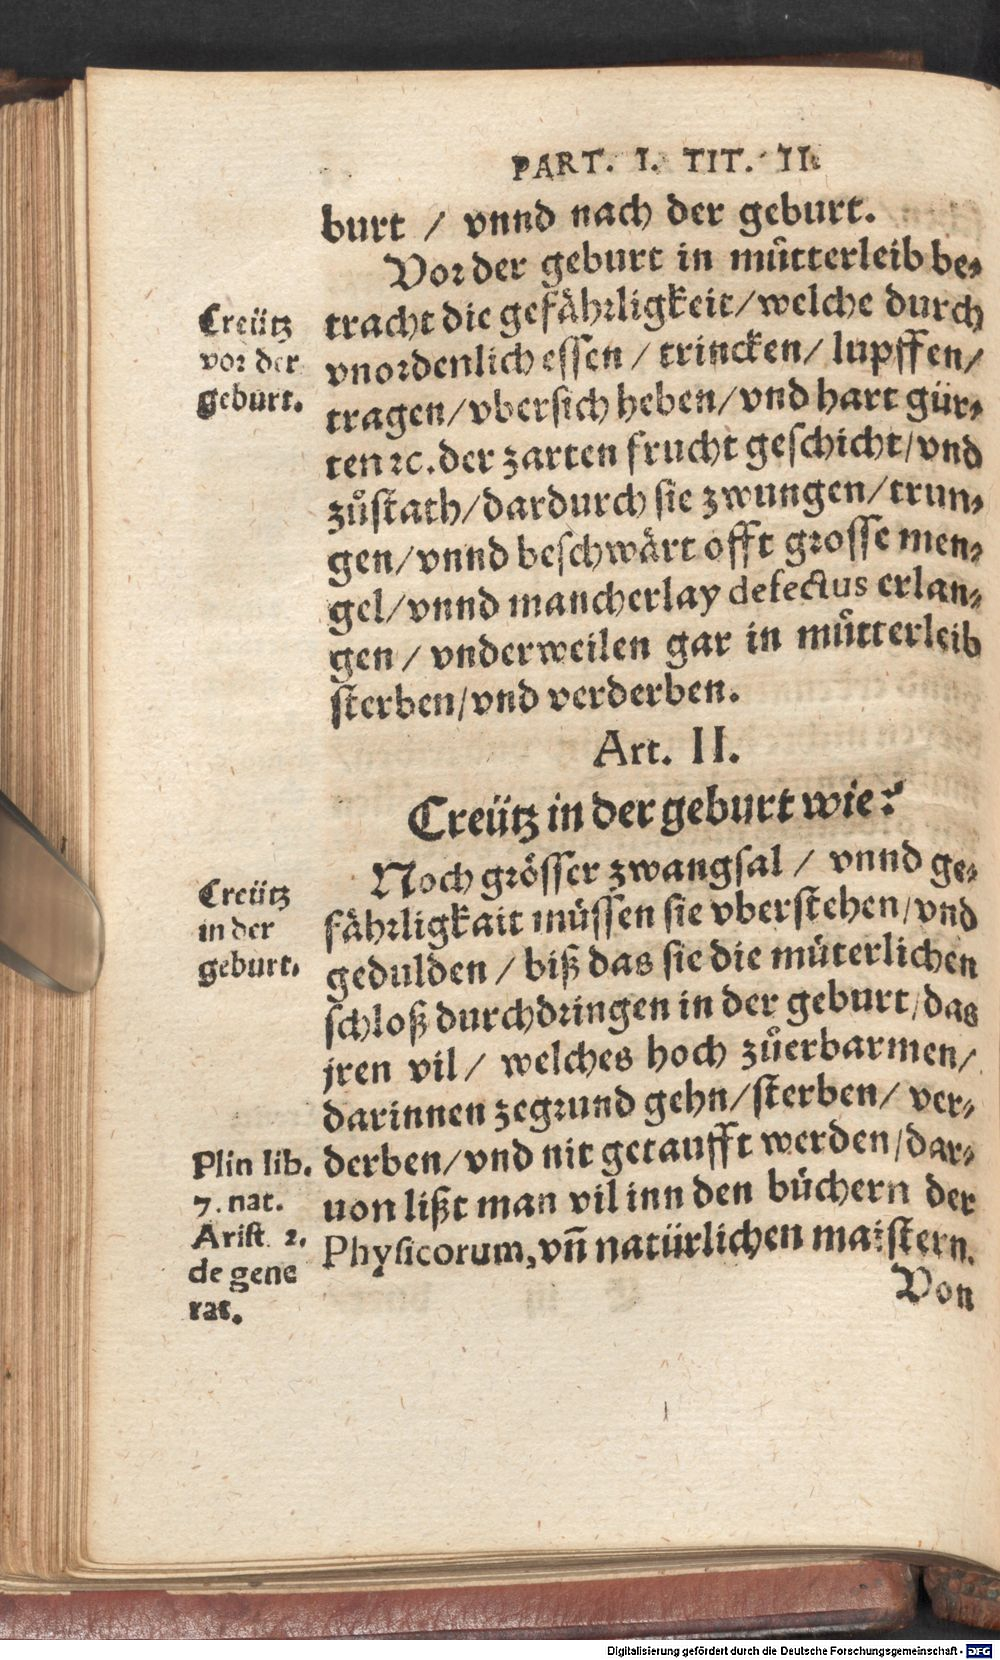 PART. I. TIT. II.
burt / vnnd nach der geburt.
Vor der geburt in můtterleib be-
Creütz
vor der
geburt.
tracht die gefährligkeit/welche durch
vnordenlich essen / trincken/ lupffen/
tragen/vbersich heben/vnd hart gür-
ten ꝛc. der zarten frucht geschicht/vnd
zůstath/dardurch sie zwungen/trun-
gen/vnnd beschwärt offt grosse men-
gel/vnnd mancherlay defectus erlan-
gen / vnderweilen gar in můtterleib
sterben/vnd verderben.
Art. II.
Creütz in der geburt wie?
Creütz
in der
geburt.
Noch grösser zwangsal / vnnd ge-
fährligkait müssen sie vberstehen/vnd
gedulden / biß das sie die müterlichen
schloß durchdringen in der geburt/das
jren vil / welches hoch zůerbarmen/
darinnen zegrund gehn/sterben/ ver-
derben/vnd nit getaufft werden/dar-
uon lißt man vil inn den büchern der
Physicorum, vñ natürlichen maistern.
Plin lib.
7. nat.
Arist. 2.
de gene
rat.
Von
Digitalisierung gefördert durch die Deutsche Forschungsgemeinschaft - DFG